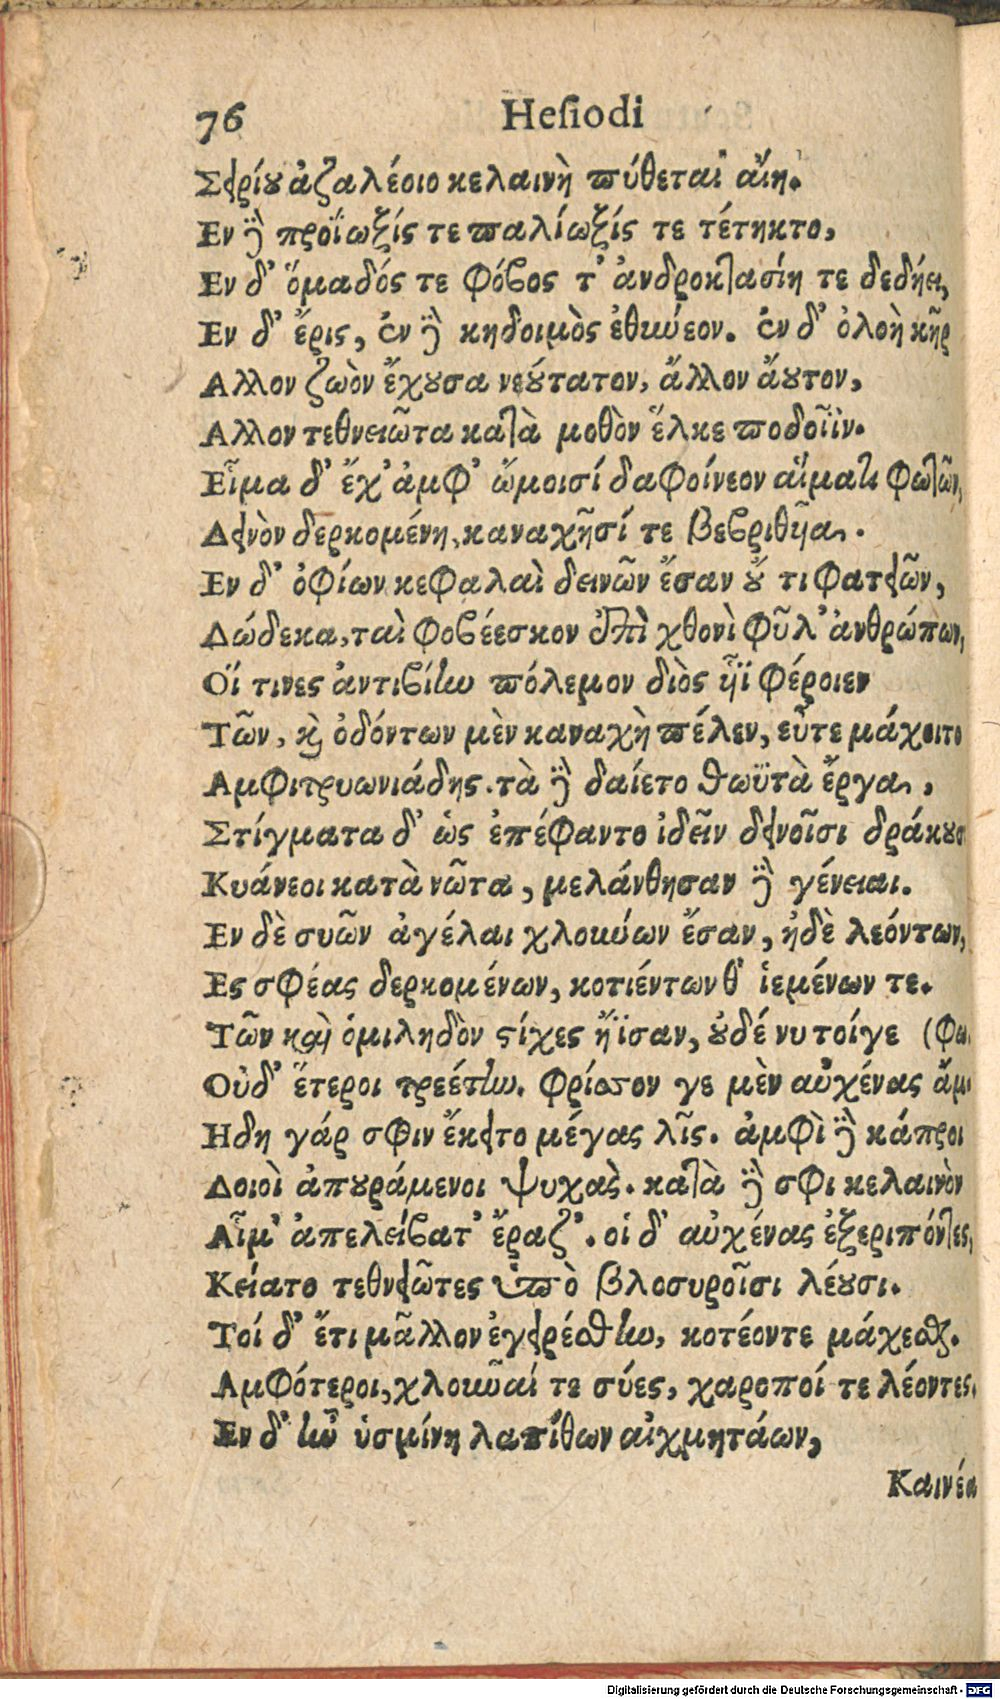 76 Heſiodi
Σειρίου ἀζαλέοιο κελαινὴ πύθεται αἴη.
Εν δὲ προΐωξίς τε παλίωξίς τε τέτηκτο,
Εν δ' ὅμαδός τε φόβος τ' ἀνδροκτασίη τε δεδήει,
Εν δ' ἔρις, ἐν δὲ κηδοιμὸς ἐθιώεον. ἐν δ' ὀλοὴ κῆρ
Αλλον ζωὸν ἔχουσα νεούτατον, ἄλλον ἄουτον,
Αλλον τεθνειῶτα κατὰ μοθὸν ἕλκε ποδοῖϊν.
Εἷμα δ' ἔχ' ἀμφ' ὤμοισί δαφοίνεον αἵματι φωτῶν,
Δεινὸν δερκομένη, καναχῆσί τε βεβριθῆα.
Εν δ' ὀφίων κεφαλαὶ δεινῶν ἔσαν οὔ τι φατειῶν,
Δώδεκα, ταὶ φοβέεσκον ἐπὶ χθονὶ φῦλ' ἀνθρώπων,
Οἵ τινες ἀντιβίην πόλεμον διὸς ἧϊ φέροιεν
Τῶν, καὶ ὀδόντων μὲν καναχὴ πέλεν, εὖτε μάχοιτο
Αμφιτρυωνιάδης. τὰ δὲ δαίετο θωϋτὰ ἔργα,
Στίγματα δ' ὡς ἐπέφαντο ἰδεῖν δεινοῖσι δράκουσ
Κυάνεοι κατὰ νῶτα, μελάνθησαν δὲ γένειαι.
Εν δὲ συῶν ἀγέλαι χλούνων ἔσαν, ἠδὲ λεόντων,
Ες σφέας δερκομένων, κοτιέντων θ' ἱεμένων τε.
Τῶν καὶ ὁμιληδὸν στίχες ἤϊσαν, οὐδέ νυ τοίγε (φω.
Οὐδ' ἕτεροι τρεέτην. φρίσσον γε μὲν αὐχένας ἄμ-
Ηδη γάρ σφιν ἔκειτο μέγας λῖς. ἀμφὶ δὲ κάπροι
Δοιοὶ ἀπουράμενοι ψυχὰς. κατὰ δὲ σφι κελαινὸν
Αἷμ' ἀπελείβατ' ἔραζ'. οἱ δ' αὐχένας ἐξεριπόντες,
Κείατο τεθνειῶτες ὑπὸ βλοσυροῖσι λέουσι.
Τοί δ' ἔτι μᾶλλον ἐγειρέσθην, κοτέοντε μάχεσθαι.
Αμφότεροι, χλοῦναί τε σύες, χαροποί τε λέοντες.
Εν δ' ἦν ὑσμίνη λαπίθων αἰχμητάων,
Καινέα
Digitalisierung gefördert durch die Deutsche Forschungsgemeinschaft - DFG